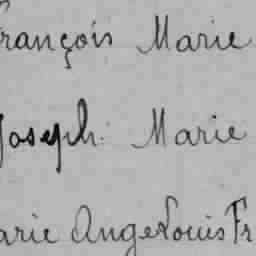 François Marie
Joseph Marie
arie Ange Louis Fr